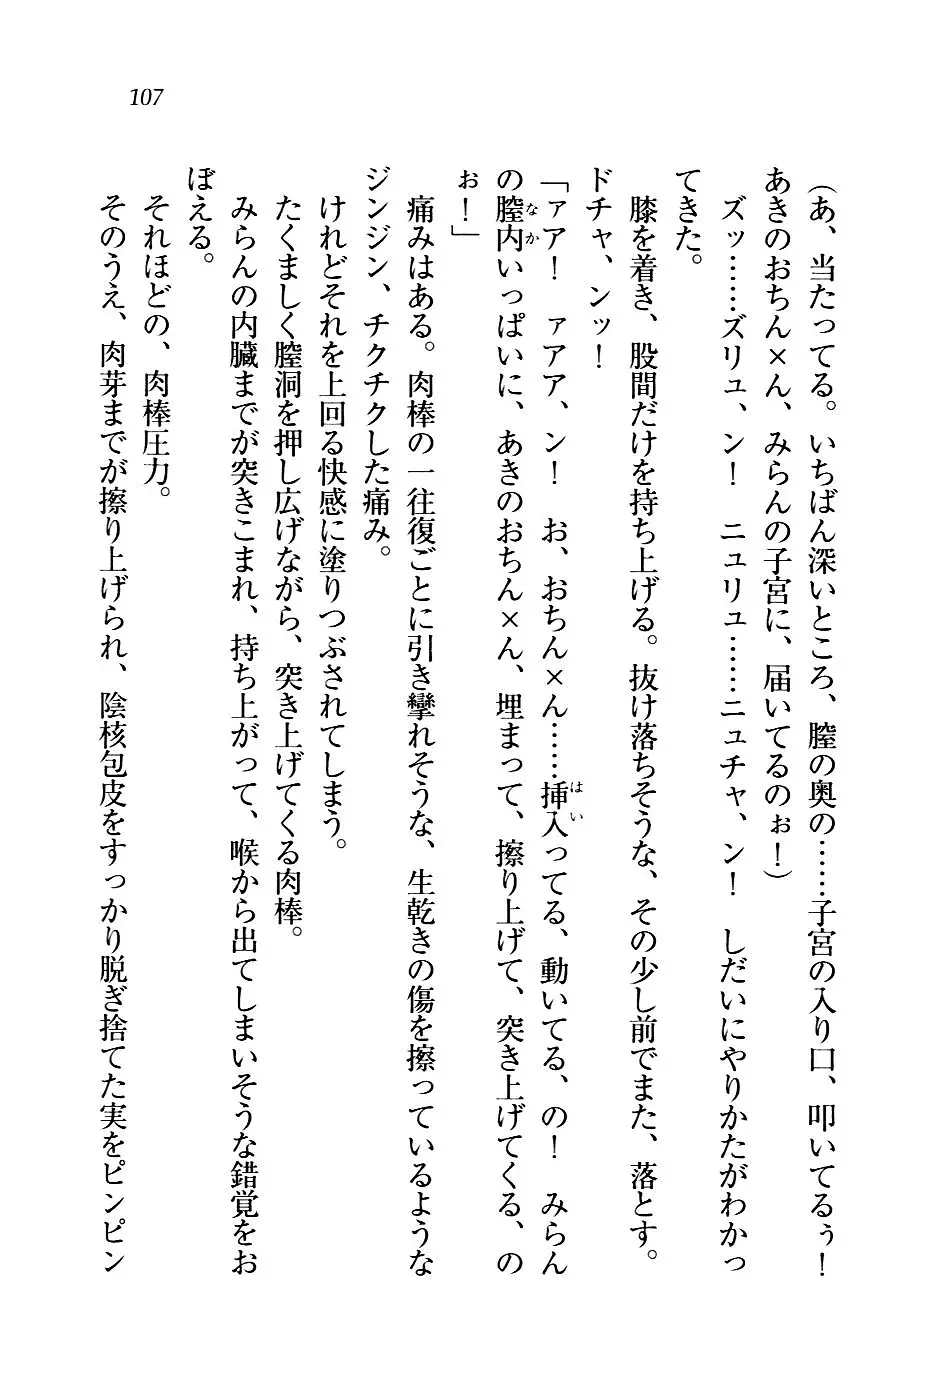 107
(あ、当たってる。いちばん深いところ、膣の奥の……子宮の入り口、叩いてるぅ！
あきのおちん×ん、みらんの子宮に、届いてるのぉ！)
ズッ……ズリュ、ン！　ニュリュ……ニュチャ、ン！　しだいにやりかたがわかっ
てきた。
膝を着き、股間だけを持ち上げる。抜け落ちそうな、その少し前でまた、落とす。
ドチャ、ンッ！
「ァア！　ァアア、ン！　お、おちん×ん……挿入ってる、動いてる、の！　みらん
の膣内いっぱいに、あきのおちん×ん、埋まって、擦り上げて、突き上げてくる、の
ぉ！」
痛みはある。肉棒の一往復ごとに引き攣れそうな、生乾きの傷を擦っているような
ジンジン、チクチクした痛み。
けれどそれを上回る快感に塗りつぶされてしまう。
たくましく膣洞を押し広げながら、突き上げてくる肉棒。
みらんの内臓までが突きこまれ、持ち上がって、喉から出てしまいそうな錯覚をお
ぼえる。
それほどの、肉棒圧力。
そのうえ、肉芽までが擦り上げられ、陰核包皮をすっかり脱ぎ捨てた実をピンピン